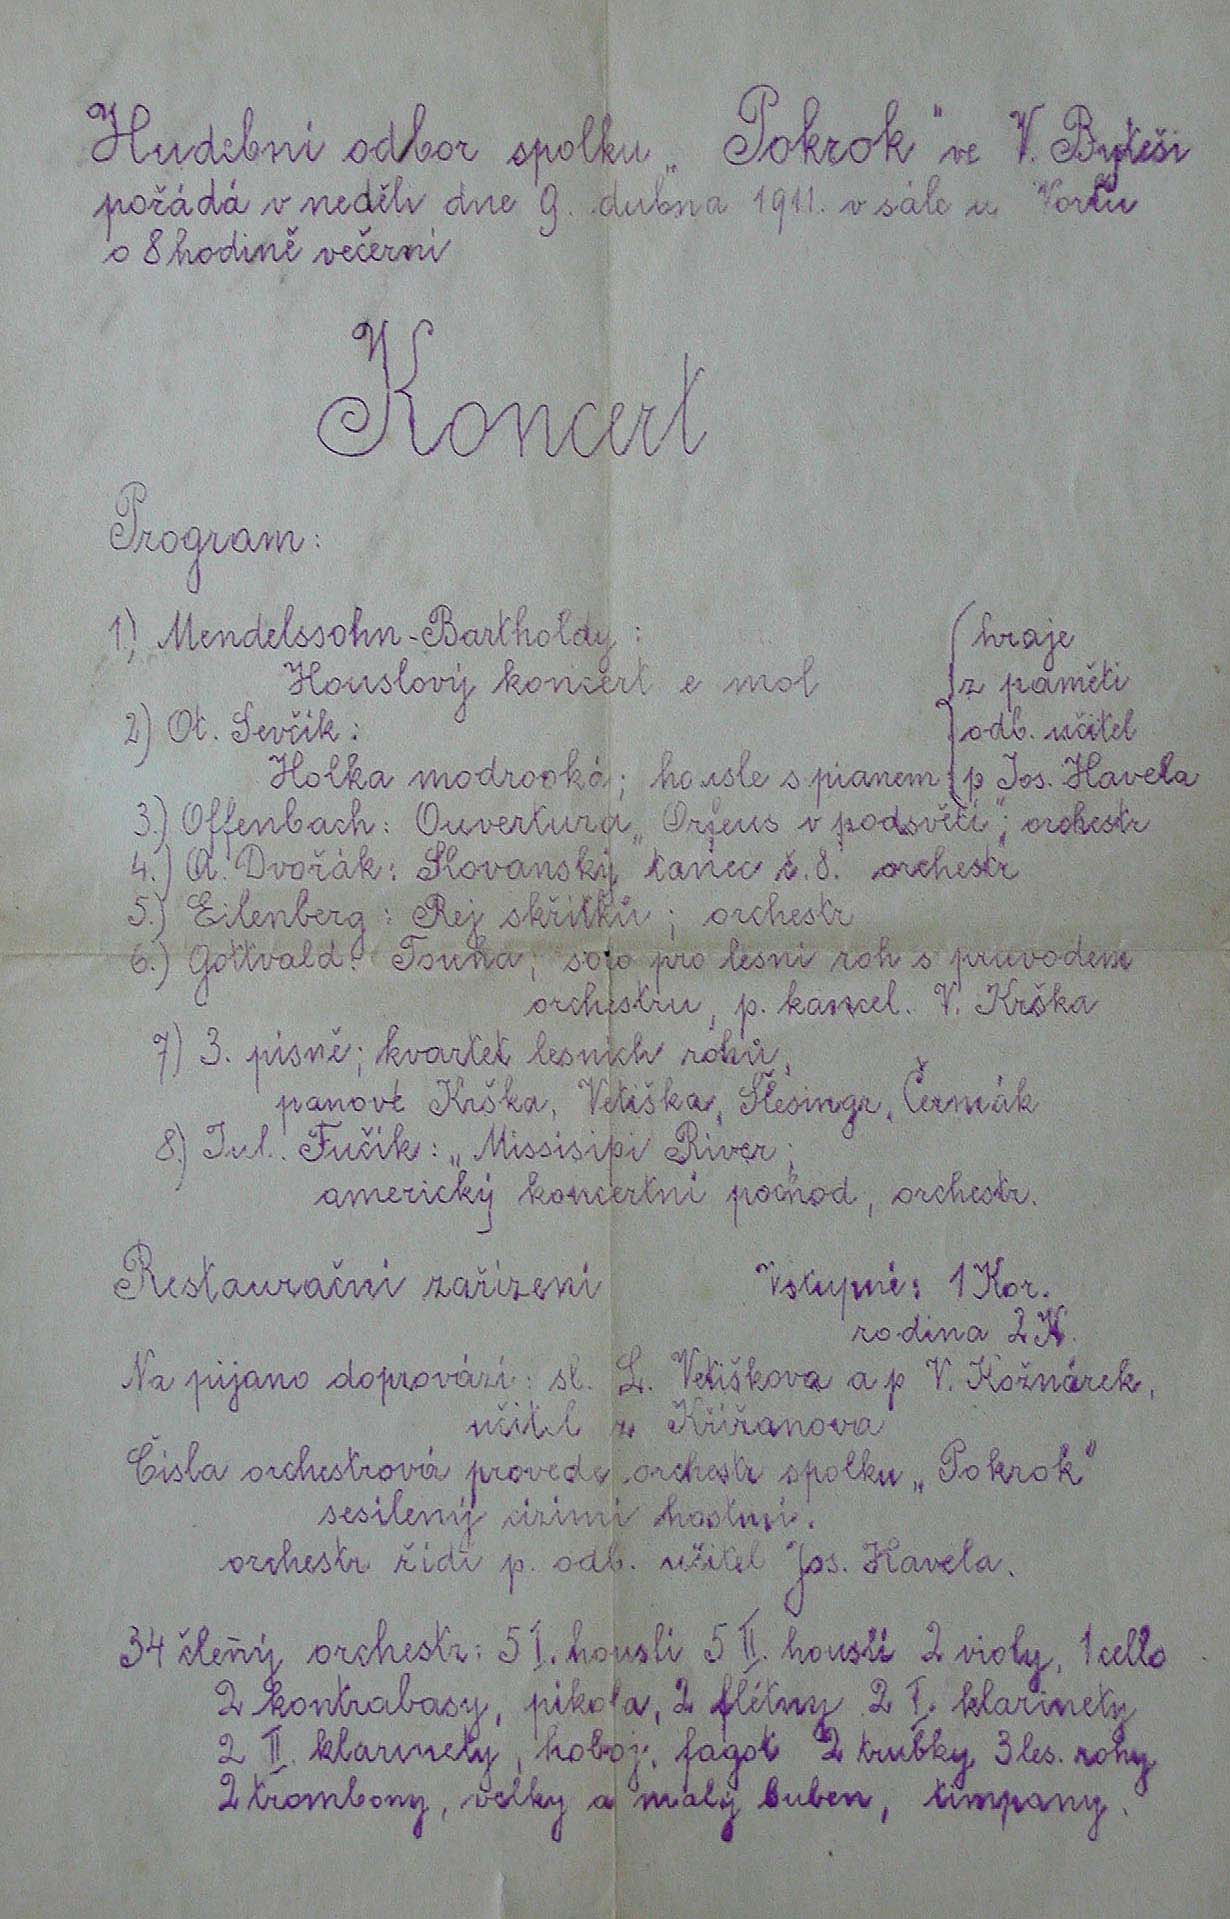 Hudební odbor spolku „Pokrok" ve V. Byteši
pořádá v neděli dne 9. dubna 1911. v sále u Vorlu
o 8 hodině večerní
Koncert
Program:
1) Mendelssohn-Bartholdy:
Houslový koncert e mol
hraje
z paměti
2) Ot. Ševčík:
odb. učitel
Holka modrooká; housle s pianem
p Jos. Havela
3.) Offenbach: Ouvertura „Orfeus v podsvěčí"; orchestr
4.) A. Dvořák: Slovanský tanec č. 8. orchestr
5.) Eilenberg: Rej skřítků; orchestr
6.) Gottvald: Touha; solo pro lesní roh s průvodem
orchestru, p. kancel. V. Krška
7) 3. písně; kvartet lesních rohů,
panové Krška, Vetiška, Šlesingr, Čermák
8.) Jul. Fučík: „Missisipi River;
americký koncertní pochod, orchestr.
Restaurační zařízení
Vstupné: 1 Kor.
rodina 2 K.
Na pijano doprovází: sl. L. Vetiškova a p V. Kožnárek,
učitel z Křižanova
Čísla orchestrová provede orchestr spolku „Pokrok"
sesílený cizími hostmi.
orchestr řídí p. odb. učitel Jos. Havela.
34 člený orchestr: 5 I. houslí 5 II. houslí 2 violy, 1 cello
2 kontrabasy, pikola, 2 flétny 2 I. klarinety
2 II. klarinety, hoboj, fagot 2 trubky 3 les. rohy
2 trombony, velký a malý buben, timpany.